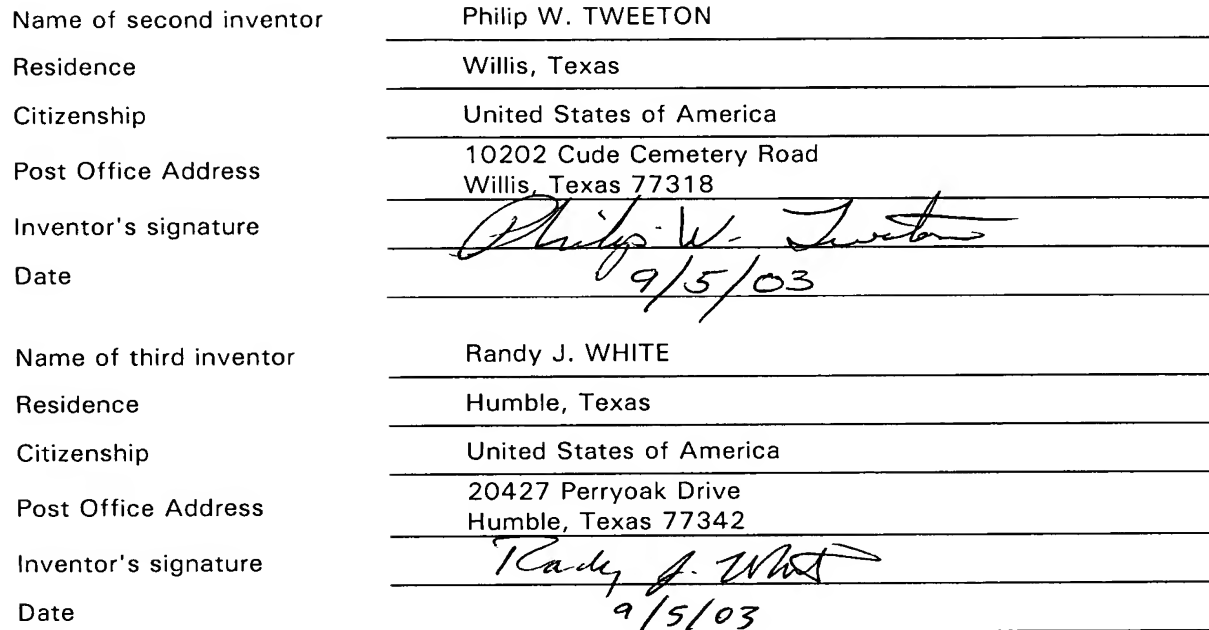 Name of second inventor Philip W. TWEETON
Residence Willis, Texas
Citizenship United States of America
Post Office Address 10202 Cude Cemetery Road
Willis, Texas 77318
Inventor's signature Philip W. Tweeton
Date 9/5/03
Name of third inventor Randy J. WHITE
Residence Humble, Texas
Citizenship United States of America
Post Office Address 20427 Perryoak Drive
Humble, Texas 77342
Inventor's signature Randy J. White
Date 9/5/03